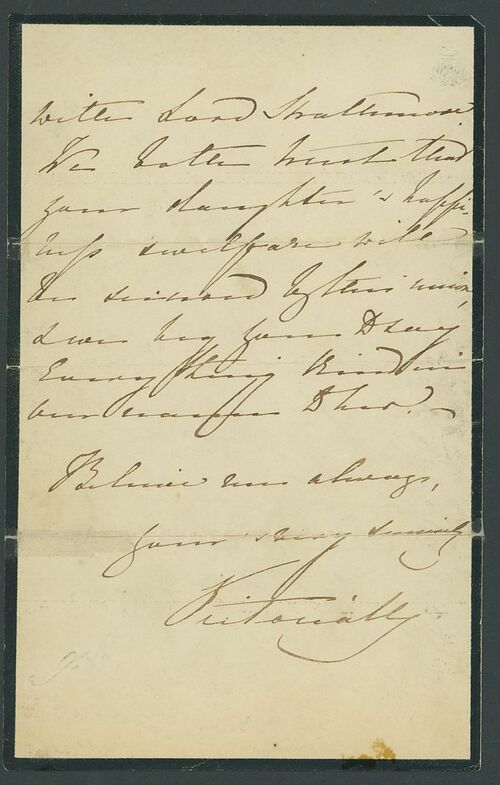 with Lord Strathmore.
We both trust that
your daughter's happi-
ness & welfare will
be insured by this union,
& we beg you to say
Everything kind in
our names to her. –
Believe me always,
yours very sincerely
Victoria